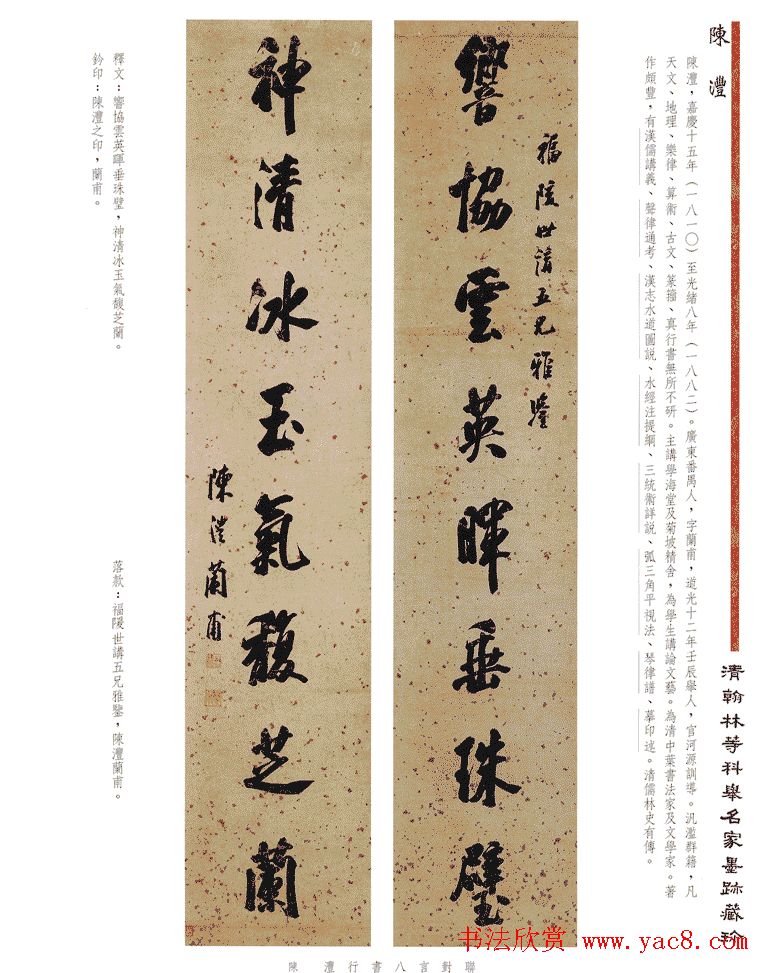 清翰林等科舉名家墨跡藏珍
陳澧
陳澧，嘉慶十五年（一八一〇）至光緒八年（一八八二）。廣東番禺人，字蘭甫，道光十二年壬辰舉人，官河源訓導。汎濫群籍，凡
天文、地理、樂律、算術、古文、篆籀、真行書無所不研。主講學海堂及菊坡精舍，為學生講論文藝。為清中葉書法家及文學家。著
作頗豐，有漢儒講義、聲律通考、漢志水道圖說、水經注提綱、三統術詳說、弧三角平視法、琴律譜、摹印述。清儒林史有傳。
福陔世講五兄雅鑒
響協雲英暉垂珠璧
神清冰玉氣馥芝蘭
陳澧蘭甫
釋文：響協雲英暉垂珠璧，神清冰玉氣馥芝蘭。
鈐印：陳澧之印，蘭甫。
落款：福陔世講五兄雅鑒，陳澧蘭甫。
陳澧行書八言對聯
书法欣赏 www.yac8.com